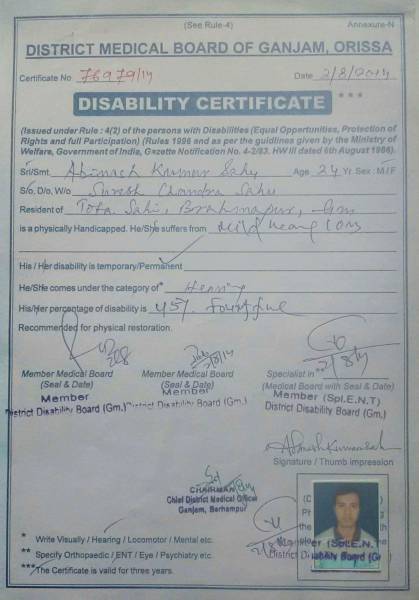 (See Rule-4) Annexure-N
DISTRICT MEDICAL BOARD OF GANJAM, ORISSA
Certificate No 76979/14 Date 2/8/2014
DISABILITY CERTIFICATE ***
(Issued under Rule : 4(2) of the persons with Disabilities (Equal Opportunities, Protection of
Rights and full Participation) (Rules 1996 and as per the guidlines given by the Ministry of
Welfare, Government of India, Gazette Notification No. 4-2/83. HW III dated 6th August 1986).
Sri/Smt. Abinash Kumar Sahu Age 24 Yr Sex : M/F
S/o, D/o, W/o Suresh Chandra Sahu
Resident of Tota Sahi, Brahmapur, Gm
is a physically Handicapped. He/She suffers from Mild hearing loss
His / Her disability is temporary/Permanent
He/She comes under the category of* Hearing
His/her percentage of disability is 45%
Recommended for physical restoration.
Member Medical Board Member Medical Board Specialist in**
2/8/14 2/8/14
(Seal & Date) (Seal & Date) (Medical Board with Seal & Date)
Member Member Member (Spl.E.N.T)
District Disability Board (Gm.) District Disability Board (Gm.) District Disability Board (Gm.)
Signature / Thumb impression
CHAIRMAN
Chief District Medical Officer
Ganjam, Berhampur
* Write Visually / Hearing / Locomotor / Mental etc.
** Specify Orthopaedic / ENT / Eye / Psychiatry etc.
***The Certificate is valid for three years.
2/8/14
Member (Spl.E.N.T
District Disability Board (Gm